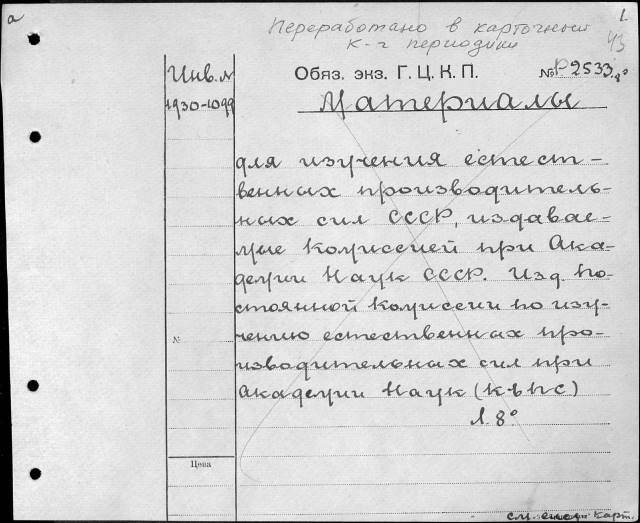 а
1.
Переработано в карточный
к-г периодики
43
Инв. №
1930-1099
Обяз. экз. Г. Ц. К. П.
№ Р 2533.8°
Материалы
для изучения естест-
венных производитель-
ных сил СССР, издавае-
мые Комиссией при Ака-
демии Наук СССР. Изд. По-
стоянной Комиссии по изу-
чению естественных про-
изводительных сил при
Академии Наук (КЕПС)
Л. 8°
№
Цена
см. след. карт.